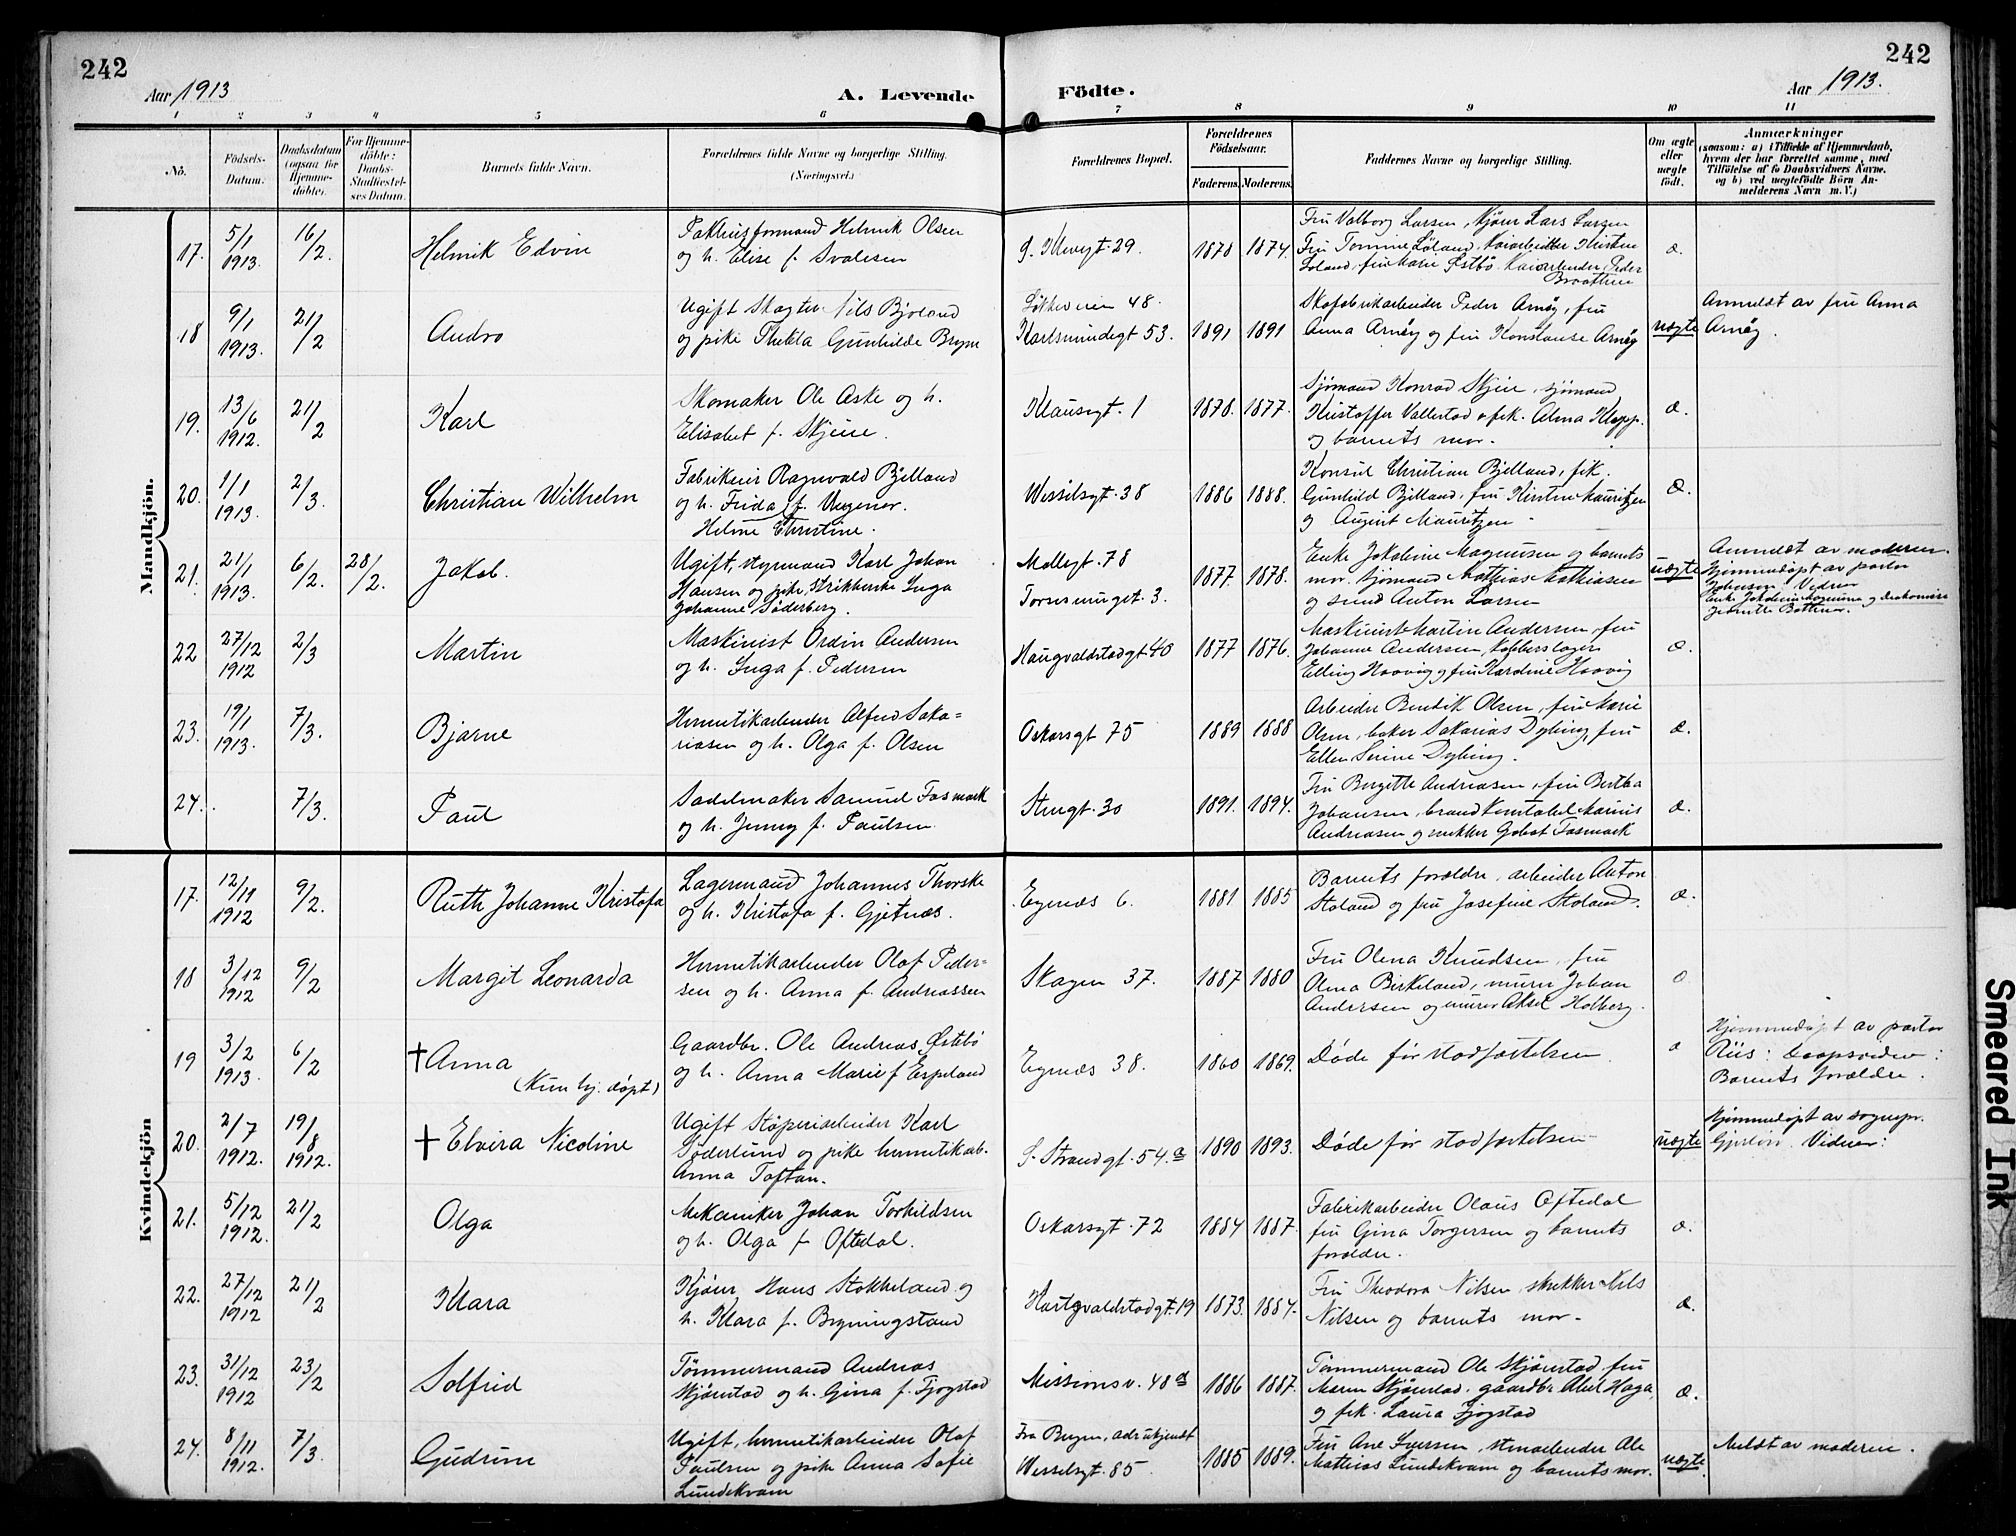 242
Aar 1913
A. Levende Födte.
Aar 1913.
242
1 2 3 4 5 6 7 8 9 10 11
No.
Födsels-
Datum.
Daabsdatum
(ogsaa for
Hjemme-
döbte).
For Hjemme-
döbte:
Daabs-
Stadfæstel-
ses Datum.
Barnets fulde Navn.
Forældrenes fulde Navne og borgerlige Stilling.
(Næringsvei.)
Forældrenes Bopæl.
Forældrenes
Födselsaar.
Faderens. Moderens.
Faddernes Navne og borgerlige Stilling.
Om ægte
eller
uægte
födt.
Anmærkninger
(saasom: a) i Tilfælde af Hjemmedaab,
hvem der har forrettet samme, med
Tilföielse af to Daabsvidners Navne.
og b) ved uægtefödte Börn An-
melderens Navn m. V.)
Mandkjön.
17. 5/1 1913. 16/2. Helmik Edvin
Pakhusformand Helmik Olsen
og h. Elise f. Svalesen
29. 1878 1874.
Fru Valborg Larsen, Kjører Lars Larsen
Fru Tomine Løland, Kaiarbeider Kristen
Løland, fru Marie Østbö Kaiarbeider Peder
Braathen
æ.
18 9/1 1913. 21/2 Andro
Ugift Slagter Nils Bjoland
og pike Thekla Gunhilde Bryne
Løkkeveien 48.
Karlsmindegt 53. 1891 1891
Skofabrikarbeider Peder Arnøy, fru
Anna Arnøy og fru Konstanse Arnøy
uægte
Anmeldt av fru Anna
Arnøy.
19. 13/6 1912. 21/2 Karl
Skomaker Ole Aske og h.
Elisabet f. Skjeie.
Klausgt. 1 1878. 1877.
Sjømand Konrad Skjeie, sjømand
Kristoffer Vallestad, frk. Alma Klepp.
og barnets mor.
æ.
20. 1/1 1913. 2/3. Christian Wilhelm
Fabrikeier Ragnvald Bjelland
og h. Frida f. Wegener.
Helene Christine.
Wesselsgt. 38 1886 1888.
Konsul Christian Bjelland, frk.
Gunhild Bjelland, fru Kirsten Mauritzen
og August Mauritzen.
Æ.
21. 21/1 1913. 6/2. 28/2. Jakob.
Ugift, styrmand Karl Johan
Hansen og pike, strikkerske Inga
Johanne Söderberg.
Møllegt. 78
3. 1877. 1878.
Enke Jakobine Magnussen og barnets
mor. Sjømand Mathias Mathiasen
og smed Anton Larsen
uægte
Anmeldt av moderen.
Hjemmedøpt av pastor
Johnson. Vidner
22 27/12 1912 2/3 Martin
Maskinist Ordin Andersen
og h. Inga f. Pedersen
Haugvaldstadgt 40 1877 1876.
Maskinist Martin Andersen, fru
Johanne Andersen, Kobberslager
Elling Haavig og fru Karoline Haavig
æ.
23. 19/1 1913. 7/3. Bjarne
Hermetikarbeider Alfred Saka=
riasen og h. Olga f. Olsen
Oskarsgt 75 1889 1888
Arbeider Bendik Olsen, fru Marie
Olsen, baker Sakarias Dybing, fru
Ellen Serine Dybing.
æ.
24. 7/3. Paul
Sadelmaker Samuel Fasmark
og h. Jenny f. Paulsen
Stengt. 30 1891. 1894.
Fru Bergitte Andreasen, fru Bertha
Johansen, brandkonstabel Marius
Andreasen og snekker Gabet Fasmark
æ.
Kvindekjön
17. 12/11 1912 9/2. Ruth Johanne Kristofa
Lagermand Johannes Thorske
og h. Kristofa f. Gjetnæs.
Egenæs 6. 1881 1885
Barnets forældre, arbeider Anton
Stoland og fru Josefine Stoland.
æ.
18 3/12 1912 9/2 Margit Leonarda
Hermetikarbeider Olaf Peder-
sen og h. Anna f. Andreassen
Skagen 37. 1887 1880
Fru Olena Knudsen, fru
Olena Birkeland, murer Johan
Andersen og murer Aksel Holberg.
19 3/2 1913. 6/2 † Anna
(Kun hj. døpt)
Gaardbr. Ole Andreas Østebö
og h. Anna Marie f Espeland
Egenæs 38. 1860 1869.
Døde før stadfæstelsen.
æ
Hjemmedøpt av pastor
Riis: Daapsvidner:
Barnets forældre.
20. 2/7 1912. 19/8 1912. † Elvira Nicoline
Ugift Støperiarbeider Karl
Söderlund og pike hermetikarb.
Anna Toftan.
S. Strandgt. 54.a 1890 1893.
Døde før stadfæstelsen
uægte
Hjemmedøpt av sognepr.
Gjerløw Vidner:
21. 5/12 1912. 21/2 Olga
Mekaniker Johan Torkildsen
og h. Olga f. Oftedal.
Oskarsgt. 72 1884 1887.
Fabrikarbeider Olaus Oftedal
fru Gina Torgersen og barnets
forældre.
æ.
22. 27/12 1912 21/2 Klara
Kjører Hans Stokkeland og
h. Klara f. Bryningsland
Haugvaldstadgt. 19 1873. 1884.
Fru Theodora Nilsen, snekker Nils
Nilsen og barnets mor.
æ.
23. 31/12 1912 23/2 Solfrid
Tømmermand Andreas
Skjørestad og h. Gina f. Fjogstad
Missionsv. 48a 1886 1887.
Tømmermand Ole Skjørestad, fru
Maren Skjørestad, gaardbr. Abel Haga,
og frk. Laura Fjogstad
æ.
24. 8/11 1912. 7/3. Gudrun
Ugift, hermetikarbeider Olaf
Paulsen og pike Anna Sofie
Lundekvam
Fra Bergen, adr. ukjendt
Wesselsgt. 85. 1885 1889.
Fru Ane Iversen, stenarbeider Ole
Mathias Lundekvam og barnets mor.
uægte
Meldt av moderen.
Smeared Ink